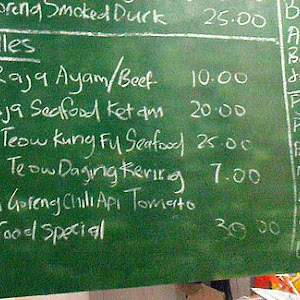 oreng Smoked Duck 25.00
les
Raja Ayam/Beef 10.00
ja Seafood Ketam 20.00
Teow Kung Fu Seafood 25.00
Teow Daging Kering 7.00
Goreng Chili Api Tomato
Food Special 30.00